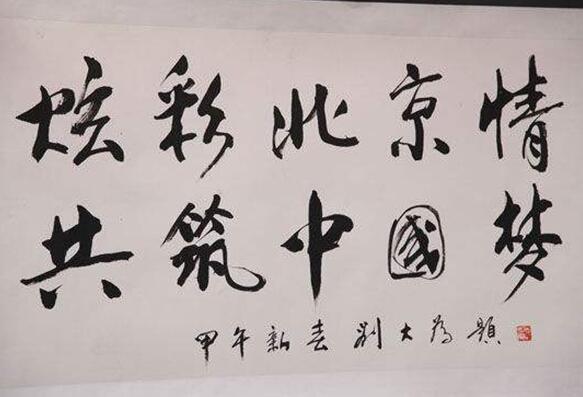 炫彩北京情
共筑中國梦
甲午新春 刘大为題